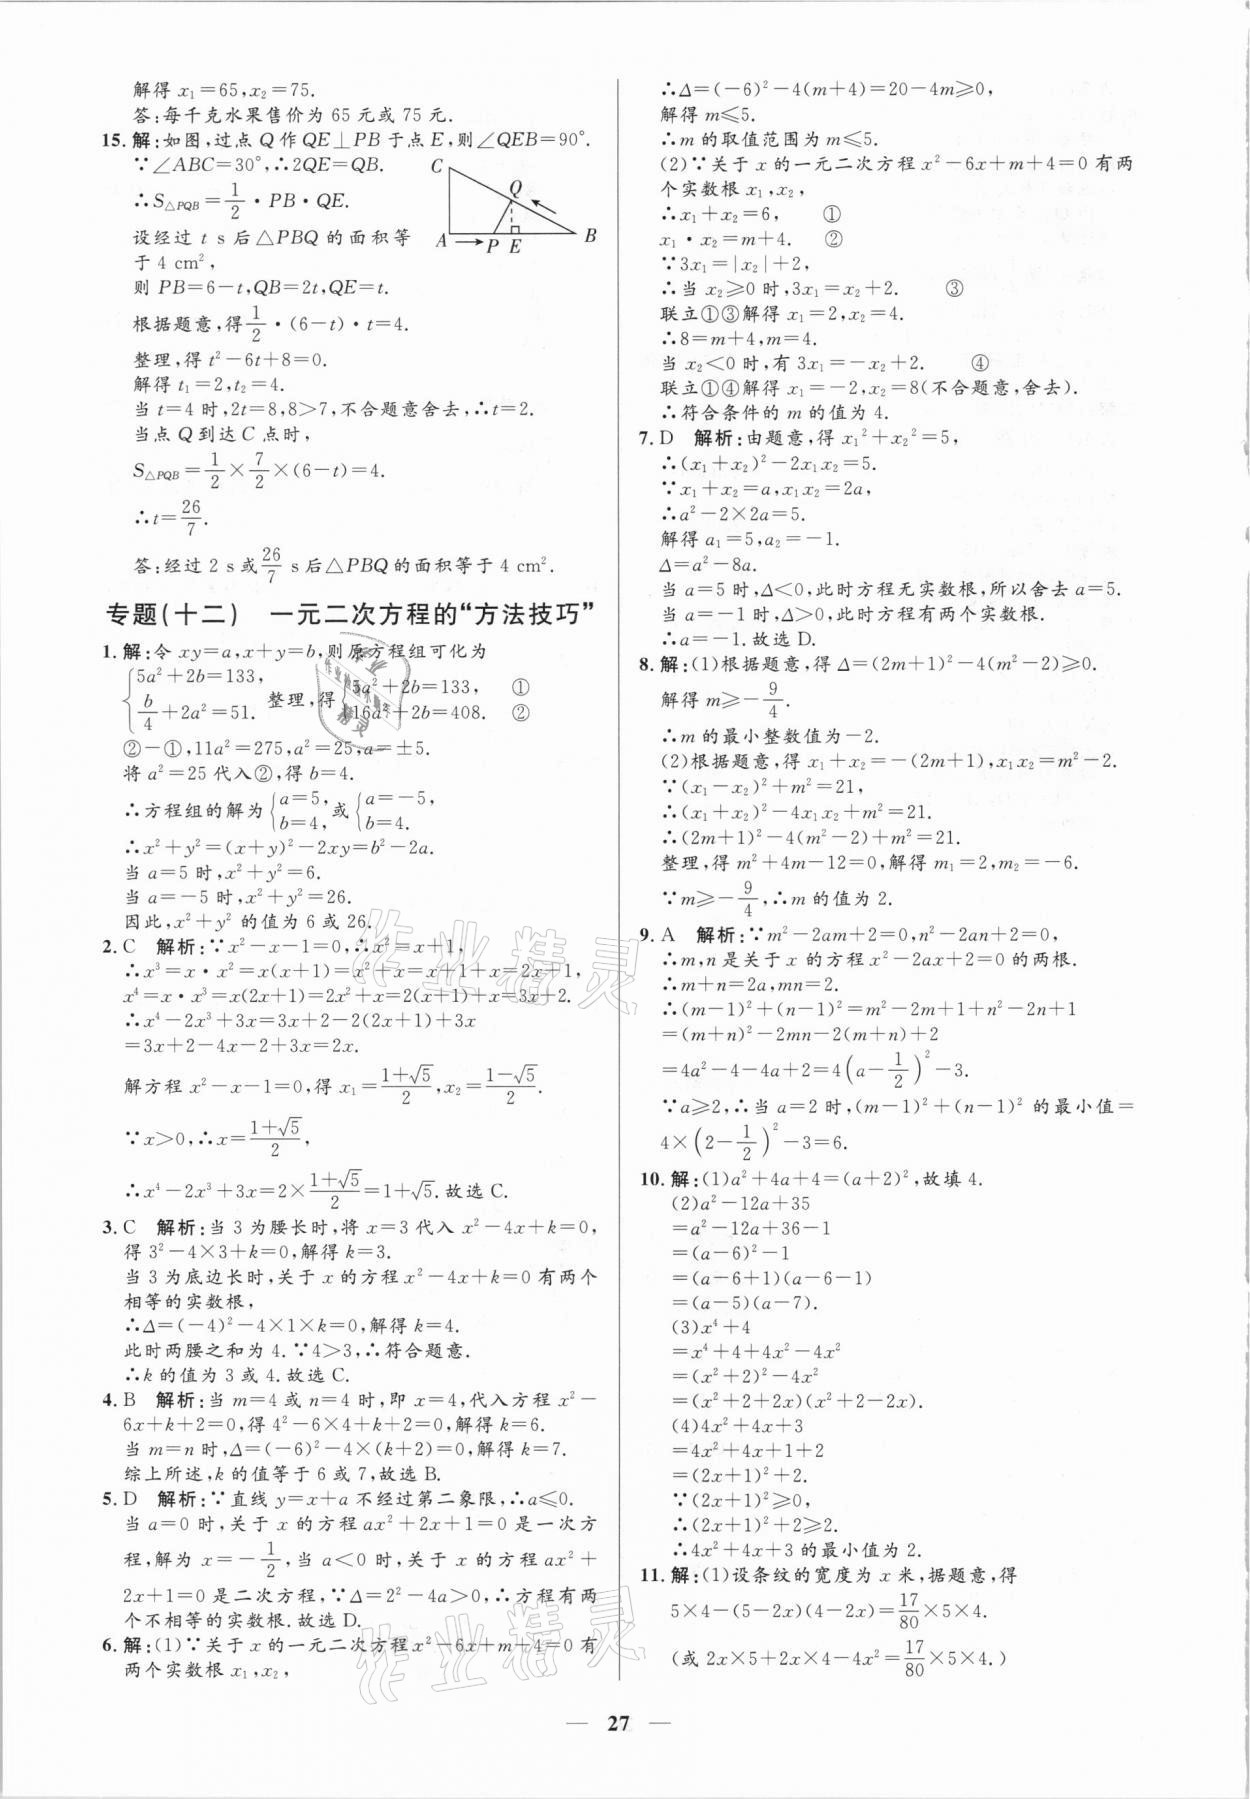 解得 x₁=65,x₂=75.
答:每千克水果售价为 65 元或 75 元.
15. 解:如图,过点 Q 作 QE⊥PB 于点 E,则∠QEB=90°.
∵∠ABC=30°,∴2QE=QB.
∴S△PQB=1/2・PB・QE.
设经过 t s 后△PBQ 的面积等
于 4 cm²,
则 PB=6-t,QB=2t,QE=t.
根据题意,得1/2・(6-t)・t=4.
整理,得 t²-6t+8=0.
解得 t₁=2,t₂=4.
当 t=4 时,2t=8,8>7,不合题意舍去,∴t=2.
当点 Q 到达 C 点时,
S△PQB=1/2×7/2×(6-t)=4.
∴t=26/7.
答:经过 2 s 或26/7 s 后△PBQ 的面积等于 4 cm².
C
Q
A
P
E
B
专题(十二) 一元二次方程的“方法技巧”
1. 解:令 xy=a,x+y=b,则原方程组可化为
{5a²+2b=133, b/4+2a²=51. 整理,得{5a²+2b=133, ① 16a²+2b=408. ②
②-①,11a²=275,a²=25,a=±5.
将 a²=25 代入②,得 b=4.
∴方程组的解为{a=5, b=4, 或{a=-5, b=4.
∴x²+y²=(x+y)²-2xy=b²-2a.
当 a=5 时,x²+y²=6.
当 a=-5 时,x²+y²=26.
因此,x²+y² 的值为 6 或 26.
2. C 解析:∵x²-x-1=0,∴x²=x+1,
∴x³=x・x²=x(x+1)=x²+x=x+1+x=2x+1,
x⁴=x・x³=x(2x+1)=2x²+x=2(x+1)+x=3x+2.
∴x⁴-2x³+3x=3x+2-2(2x+1)+3x
=3x+2-4x-2+3x=2x.
解方程 x²-x-1=0,得 x₁=(1+√5)/2,x₂=(1-√5)/2.
∵x>0,∴x=(1+√5)/2,
∴x⁴-2x³+3x=2×(1+√5)/2=1+√5.故选 C.
3. C 解析:当 3 为腰长时,将 x=3 代入 x²-4x+k=0,
得 3²-4×3+k=0,解得 k=3.
当 3 为底边长时,关于 x 的方程 x²-4x+k=0 有两个
相等的实数根,
∴Δ=(-4)²-4×1×k=0,解得 k=4.
此时两腰之和为 4.∵4>3,∴符合题意.
∴k 的值为 3 或 4.故选 C.
4. B 解析:当 m=4 或 n=4 时,即 x=4,代入方程 x²-
6x+k+2=0,得 4²-6×4+k+2=0,解得 k=6.
当 m=n 时,Δ=(-6)²-4×(k+2)=0,解得 k=7.
综上所述,k 的值等于 6 或 7,故选 B.
5. D 解析:∵直线 y=x+a 不经过第二象限,∴a≤0.
当 a=0 时,关于 x 的方程 ax²+2x+1=0 是一次方
程,解为 x=-1/2,当 a<0 时,关于 x 的方程 ax²+
2x+1=0 是二次方程,∵Δ=2²-4a>0,∴方程有两
个不相等的实数根.故选 D.
6. 解:(1)∵关于 x 的一元二次方程 x²-6x+m+4=0 有
两个实数根 x₁,x₂,
∴Δ=(-6)²-4(m+4)=20-4m≥0,
解得 m≤5.
∴m 的取值范围为 m≤5.
(2)∵关于 x 的一元二次方程 x²-6x+m+4=0 有两
个实数根 x₁,x₂,
∴x₁+x₂=6, ①
x₁・x₂=m+4. ②
∵3x₁=|x₂|+2,
∴当 x₂≥0 时,3x₁=x₂+2. ③
联立①③解得 x₁=2,x₂=4.
∴8=m+4,m=4.
当 x₂<0 时,有 3x₁=-x₂+2. ④
联立①④解得 x₁=-2,x₂=8(不合题意,舍去).
∴符合条件的 m 的值为 4.
7. D 解析:由题意,得 x₁²+x₂²=5,
∴(x₁+x₂)²-2x₁x₂=5.
∵x₁+x₂=a,x₁x₂=2a,
∴a²-2×2a=5.
解得 a₁=5,a₂=-1.
Δ=a²-8a.
当 a=5 时,Δ<0,此时方程无实数根,所以舍去 a=5.
当 a=-1 时,Δ>0,此时方程有两个实数根.
∴a=-1.故选 D.
8. 解:(1)根据题意,得 Δ=(2m+1)²-4(m²-2)≥0.
解得 m≥-9/4.
∴m 的最小整数值为-2.
(2)根据题意,得 x₁+x₂=-(2m+1),x₁x₂=m²-2.
∵(x₁-x₂)²+m²=21,
∴(x₁+x₂)²-4x₁x₂+m²=21.
∴(2m+1)²-4(m²-2)+m²=21.
整理,得 m²+4m-12=0,解得 m₁=2,m₂=-6.
∵m≥-9/4,∴m 的值为 2.
9. A 解析:∵m²-2am+2=0,n²-2an+2=0,
∴m,n 是关于 x 的方程 x²-2ax+2=0 的两根.
∴m+n=2a,mn=2.
∴(m-1)²+(n-1)²=m²-2m+1+n²-2n+1
=(m+n)²-2mn-2(m+n)+2
=4a²-4-4a+2=4(a-1/2)²-3.
∵a≥2,∴当 a=2 时,(m-1)²+(n-1)² 的最小值=
4×(2-1/2)²-3=6.
10. 解:(1)a²+4a+4=(a+2)²,故填 4.
(2)a²-12a+35
=a²-12a+36-1
=(a-6)²-1
=(a-6+1)(a-6-1)
=(a-5)(a-7).
(3)x⁴+4
=x⁴+4+4x²-4x²
=(x²+2)²-4x²
=(x²+2+2x)(x²+2-2x).
(4)4x²+4x+3
=4x²+4x+1+2
=(2x+1)²+2.
∵(2x+1)²≥0,
∴(2x+1)²+2≥2.
∴4x²+4x+3 的最小值为 2.
11. 解:(1)设条纹的宽度为 x 米,据题意,得
5×4-(5-2x)(4-2x)=17/80×5×4.
(或 2x×5+2x×4-4x²=17/80×5×4.)
作业精灵
作业精灵
— 27 —